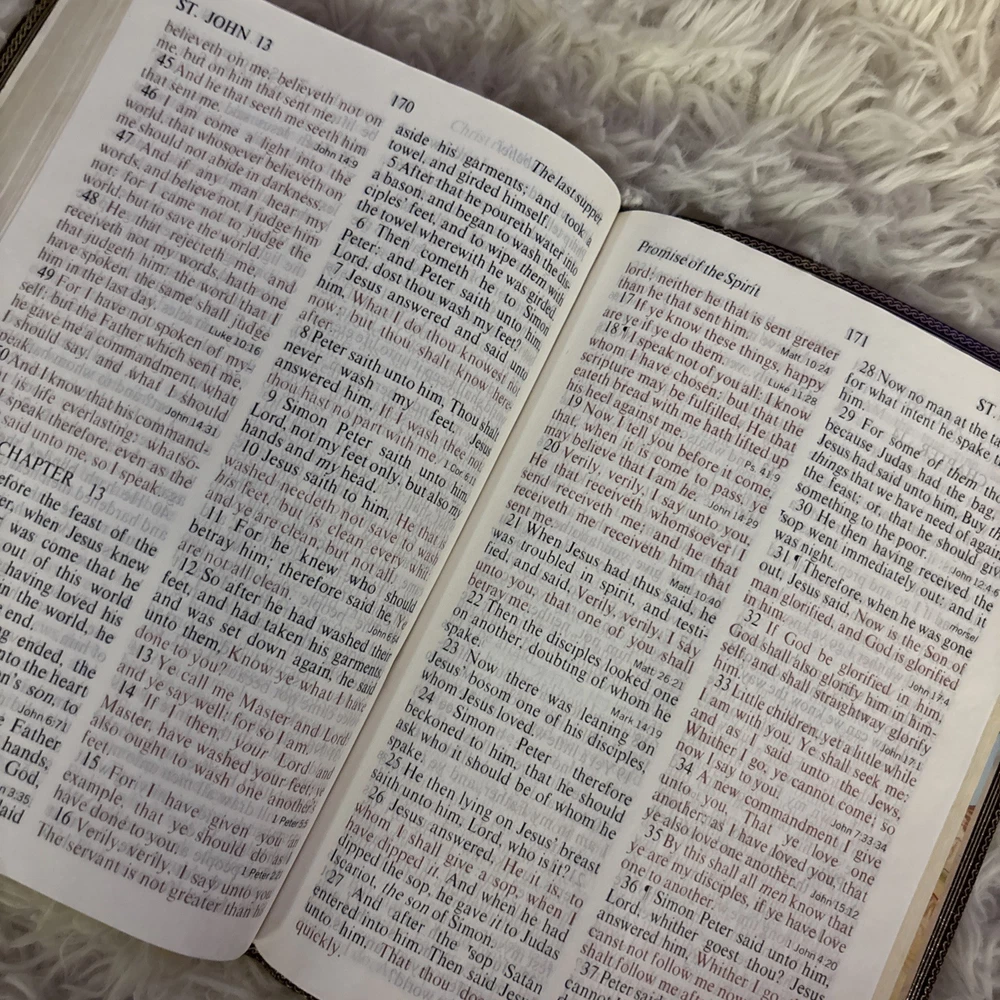 ST. JOHN 13
believeth on me, believeth not on
me, but on him that sent me.
45 And he that seeth me seeth him
that sent me.
John 14:9
46 I am come a light into the
world, that whosoever believeth on
me should not abide in darkness.
47 And if any man hear my
words, and believe not, I judge him
not: for I came not to judge the
world, but to save the world.
48 He that rejecteth me, and
receiveth not my words, hath one
that judgeth him: the word that I
have spoken, the same shall judge
him in the last day.
Luke 10:16
49 For I have not spoken of my-
self; but the Father which sent me,
he gave me a commandment, what
I should say, and what I should
speak.
John 14:31
50 And I know that his command-
is life everlasting: whatso-
speak therefore, even as the
said unto me, so I speak.
CHAPTER 13
before the feast of the
when Jesus knew
was come that he
out of this world
having loved his
in the world, he
end.
ended, the
into the heart
son, to
John 6:71
Father
hands,
God,
3:35
170
Christ
The last supper
aside his garments; and took a
towel, and girded himself.
5 After that he poureth water into
a bason, and began to wash the dis-
ciples' feet, and to wipe them with
the towel wherewith he was girded.
6 Then cometh he to Simon
Peter: and Peter saith unto him,
Lord, dost thou wash my feet?
7 Jesus answered and said unto
him, What I do thou knowest not
now; but thou shalt know here-
after.
8 Peter saith unto him, Thou shalt
never wash my feet. Jesus
answered him, If I wash thee not,
thou hast no part with me.
1 Cor
9 Simon Peter saith unto him,
Lord, not my feet only, but also my
hands and my head.
10 Jesus saith to him, He that is
washed needeth not save to wash
his feet, but is clean every whit:
and ye are clean, but not all.
11 For he knew who should
betray him; therefore said he, Ye
are not all clean.
John 6:64
12 So after he had washed their
feet, and had taken his garments,
and was set down again, he said
unto them, Know ye what I have
done to you?
13 Ye call me Master and Lord:
and ye say well; for so I am.
14 If I then, your Lord and
Master, have washed your feet; ye
also ought to wash one another's
feet.
1 Peter 5:5
15 For I have given you an
example, that ye should do as I
have done to you.
1 Peter 2:21
16 Verily, verily, I say unto you,
The servant is not greater than his
Promise of the Spirit
lord; neither he that is sent greater
than he that sent him.
Matt. 10:24
17 If ye know these things, happy
are ye if ye do them.
Luke 11:28
18 ¶ I speak not of you all: I know
whom I have chosen: but that the
scripture may be fulfilled, He that
eateth bread with me hath lifted up
his heel against me.
Ps. 41:9
19 Now I tell you before it come,
that, when it is come to pass, ye
may believe that I am he.
John 14:29
20 Verily, verily, I say unto you,
He that receiveth whomsoever I
send receiveth me; and he that
receiveth me receiveth him that
sent me.
Matt. 10:40
21 When Jesus had thus said, he
was troubled in spirit, and testi-
fied, and said, Verily, verily, I say
unto you, that one of you shall
betray me.
Matt. 26:21
22 Then the disciples looked one
on another, doubting of whom he
spake.
Mark 14:19
23 Now there was leaning on
Jesus' bosom one of his disciples,
whom Jesus loved.
24 Simon Peter therefore
beckoned to him, that he should
ask who it should be of whom he
spake.
25 He then lying on Jesus' breast
saith unto him, Lord, who is it?
26 Jesus answered, He it is, to
whom I shall give a sop, when I
have dipped it. And when he had
dipped the sop, he gave it to Judas
Iscariot, the son of Simon.
27 And after the sop Satan
entered into him. Then said Jesus
unto him, That thou doest,
quickly.
171
ST.
28 Now no man at the
for what intent he spake
him.
29 For some of them
because Judas had the bag,
Jesus had said unto him, Buy
things that we have need of against
the feast; or, that he should give
something to the poor.
John 12:4-6
30 He then having received the
sop went immediately out: and it
was night.
morsel
31 ¶ Therefore, when he was gone
out, Jesus said, Now is the Son of
man glorified, and God is glorified
in him.
John 17:4
32 If God be glorified in him,
God shall also glorify him in him-
self, and shall straightway glorify
him.
33 Little children, yet a little while
I am with you. Ye shall seek me:
and as I said unto the Jews,
Whither I go, ye cannot come; so
now I say to you.
John 7:33,34
34 A new commandment I give
unto you, That ye love one
another; as I have loved you, that
ye also love one another.
John 15:12
35 By this shall all men know that
ye are my disciples, if ye have love
one to another.
1 John 4:20
36 ¶ Simon Peter said unto him,
Lord, whither goest thou? Jesus
answered him, Whither I go,
canst not follow me now;
shalt follow me
37 Peter said
cannot